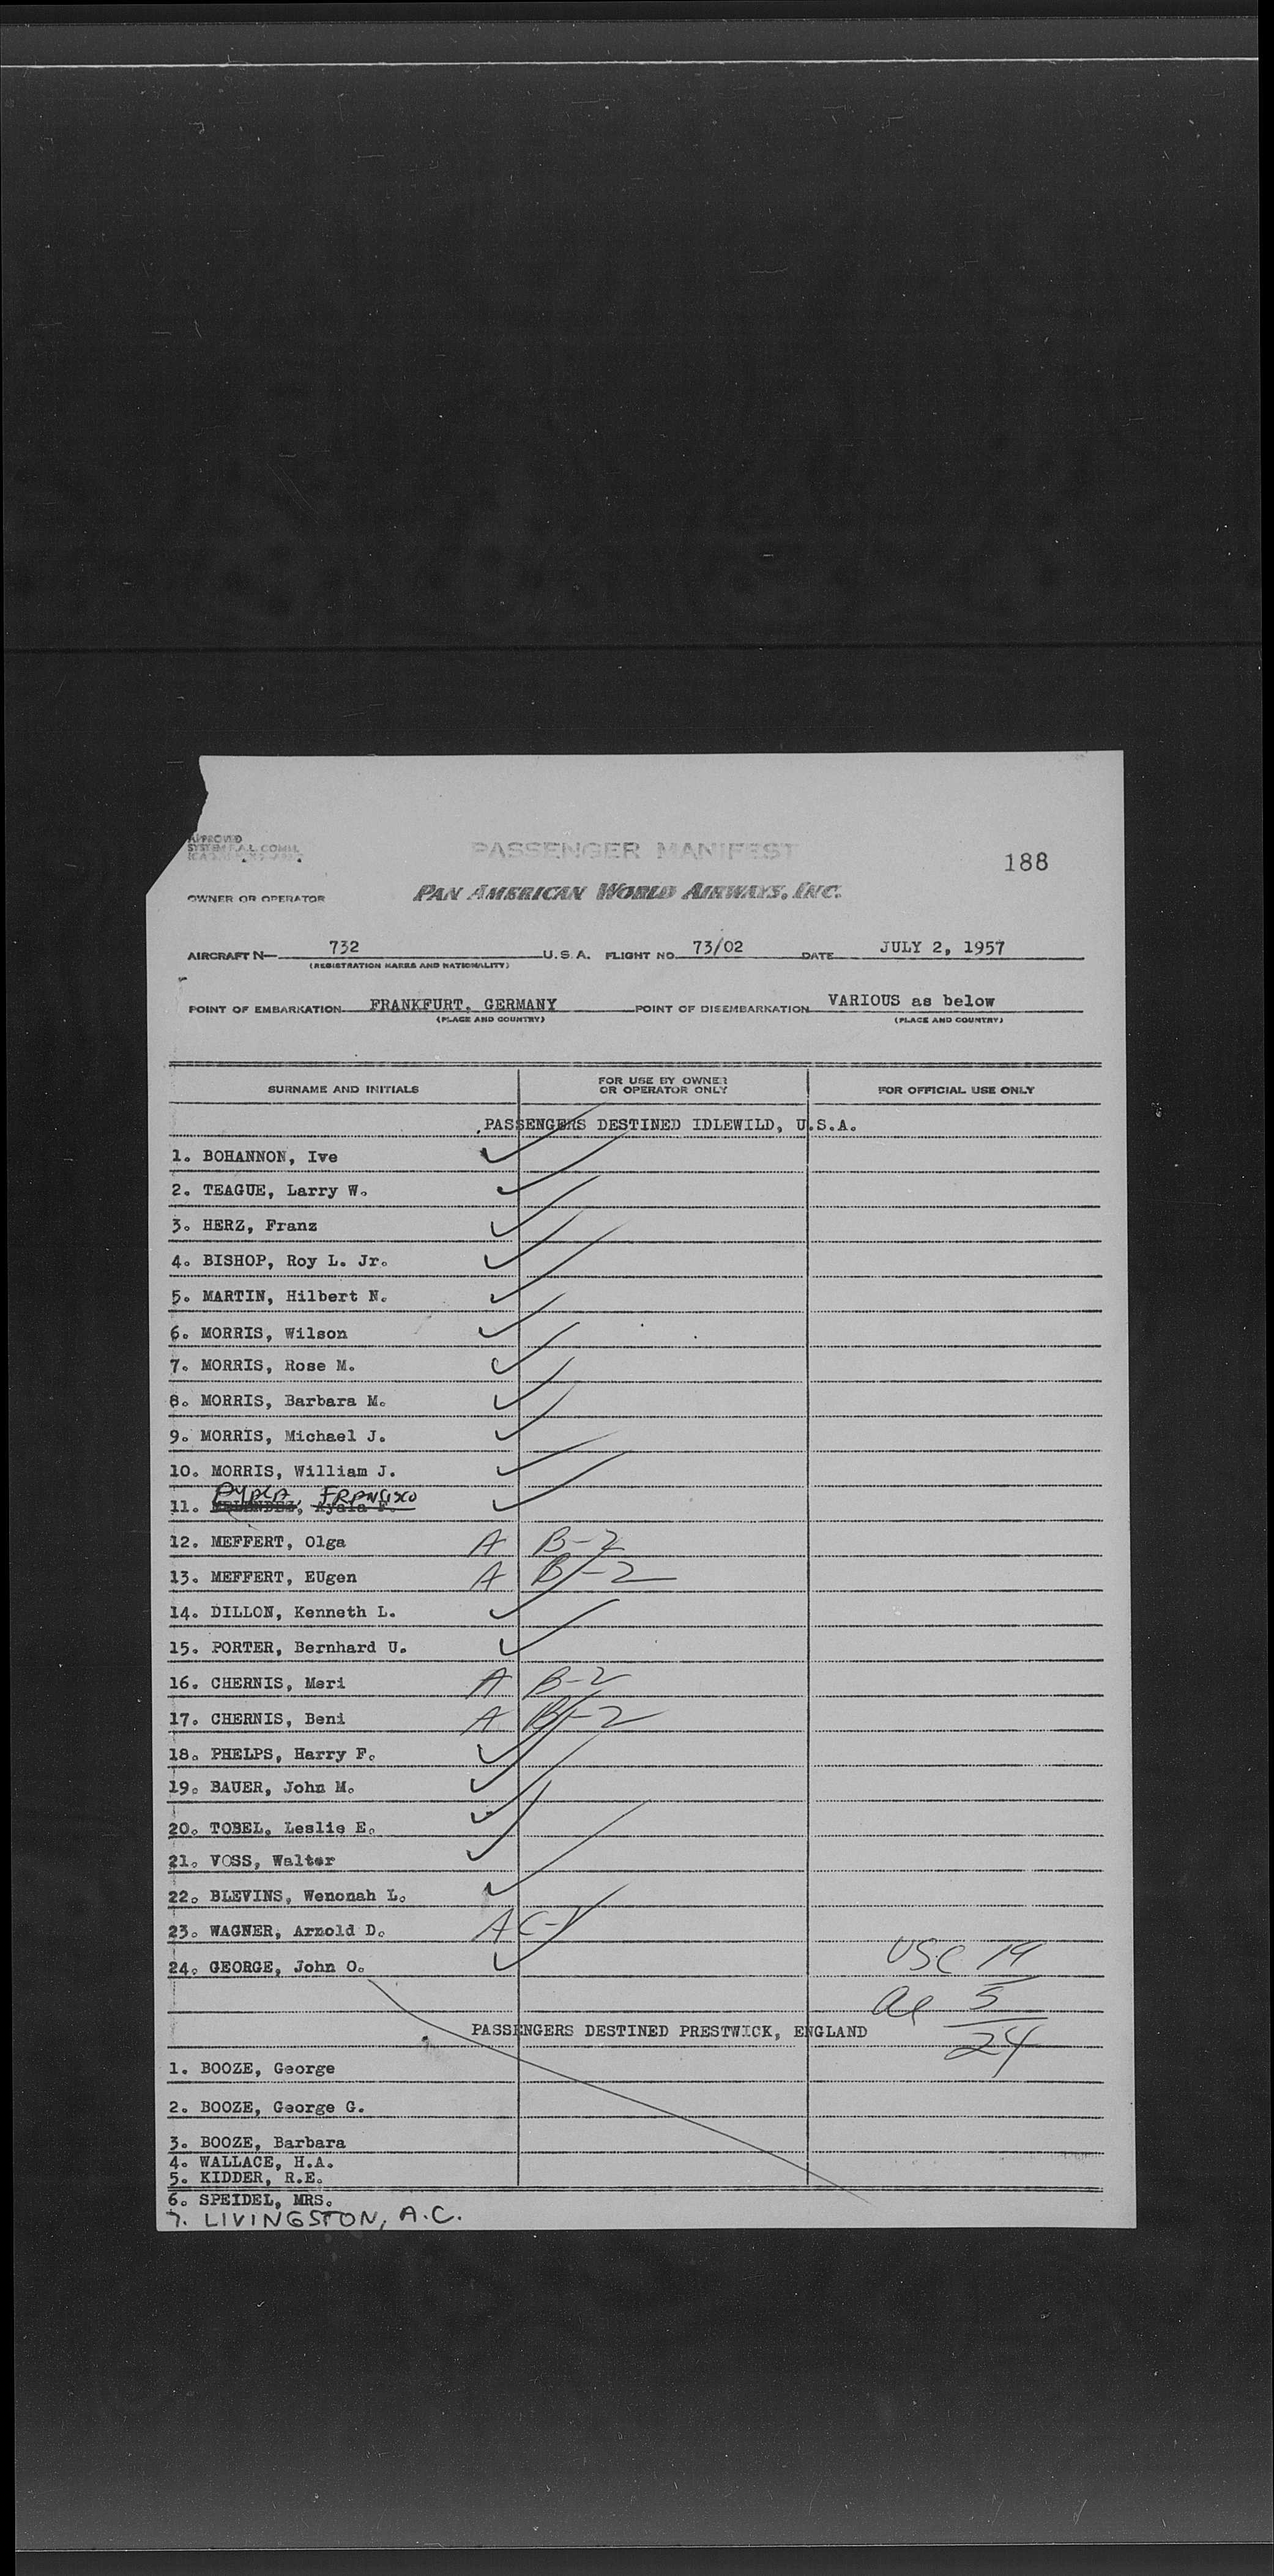 APPROVED
SYSTEM F.A.L. COMM.
PASSENGER MANIFEST
188
OWNER OR OPERATOR
PAN AMERICAN WORLD AIRWAYS, INC.
AIRCRAFT N— 732 U.S.A. FLIGHT NO. 73/02 DATE JULY 2, 1957
(REGISTRATION MARKS AND NATIONALITY)
POINT OF EMBARKATION FRANKFURT, GERMANY POINT OF DISEMBARKATION VARIOUS as below
(PLACE AND COUNTRY) (PLACE AND COUNTRY)
SURNAME AND INITIALS FOR USE BY OWNER OR OPERATOR ONLY FOR OFFICIAL USE ONLY
PASSENGERS DESTINED IDLEWILD, U.S.A.
1. BOHANNON, Ive
2. TEAGUE, Larry W.
3. HERZ, Franz
4. BISHOP, Roy L. Jr.
5. MARTIN, Hilbert N.
6. MORRIS, Wilson
7. MORRIS, Rose M.
8. MORRIS, Barbara M.
9. MORRIS, Michael J.
10. MORRIS, William J.
AYALA FRANCISCO
11. MELENDEZ, Ayala F.
12. MEFFERT, Olga A B-2
13. MEFFERT, EUgen A B-2
14. DILLON, Kenneth L.
15. PORTER, Bernhard U.
16. CHERNIS, Meri A B-2
17. CHERNIS, Beni A B-2
18. PHELPS, Harry F.
19. BAUER, John M.
20. TOBEL, Leslie E.
21. VOSS, Walter
22. BLEVINS, Wenonah L.
23. WAGNER, Arnold D. A C-1
24. GEORGE, John O. USC 19
al 5
PASSENGERS DESTINED PRESTWICK, ENGLAND 24
1. BOOZE, George
2. BOOZE, George G.
3. BOOZE, Barbara
4. WALLACE, H.A.
5. KIDDER, R.E.
6. SPEIDEL, MRS.
7. LIVINGSTON, A.C.